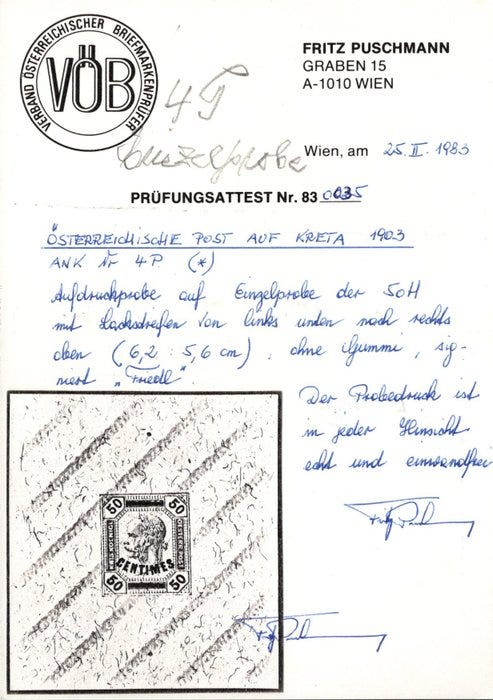 VERBAND ÖSTERREICHISCHER BRIEFMARKENPRÜFER
VÖB
FRITZ PUSCHMANN
GRABEN 15
A-1010 WIEN
4P
Einzelprobe
Wien, am 25. II. 1983
PRÜFUNGSATTEST Nr. 83 0035
ÖSTERREICHISCHE POST AUF KRETA 1903
ANK Nr 4P (*)
Aufdruckprobe auf Einzelprobe der 50H
mit Lackstreifen von links unten nach rechts
oben (6,2 : 5,6 cm), ohne Gummi, sig-
niert "Friedl".
Der Probedruck ist
in jeder Hinsicht
echt und einwandfrei
50 50
CENTIMES
50 50